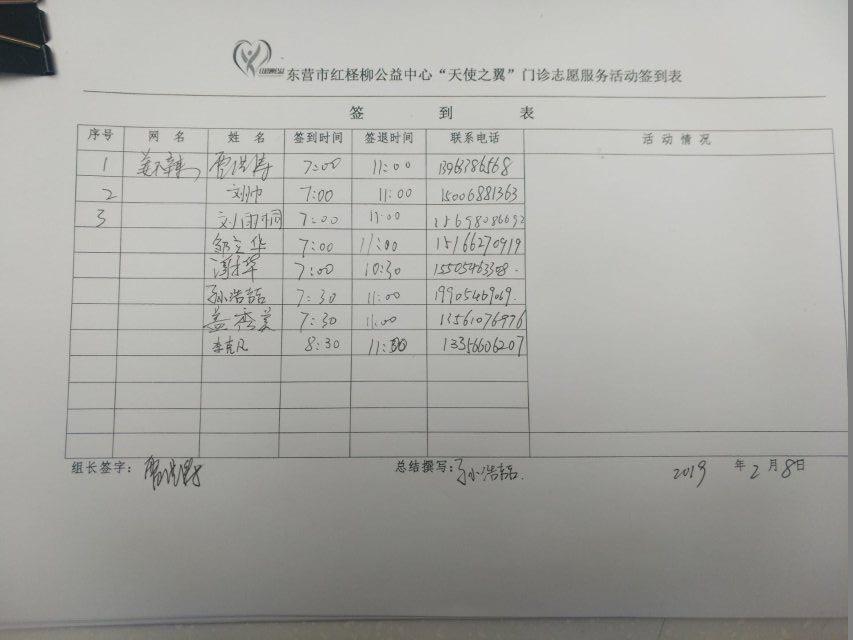 东营市红柽柳公益中心“天使之翼”门诊志愿服务活动签到表
签 到 表
序号 网 名 姓 名 签到时间 签退时间 联系电话 活 动 情 况
1 7:00 11:00 13963786568
2 刘帅 7:00 11:00 15006881363
3 7:00 11:00 15698086692
邹立华 7:00 11:00 15166270919
7:00 10:30
孙浩喆 7:30 11:00 19905469069.
盖秀美 7:30 11:00 13561076976
李克凡 8:30 11:30 13356606207
组长签字: 总结撰写: 孙浩喆. 2019 年 2 月 8 日